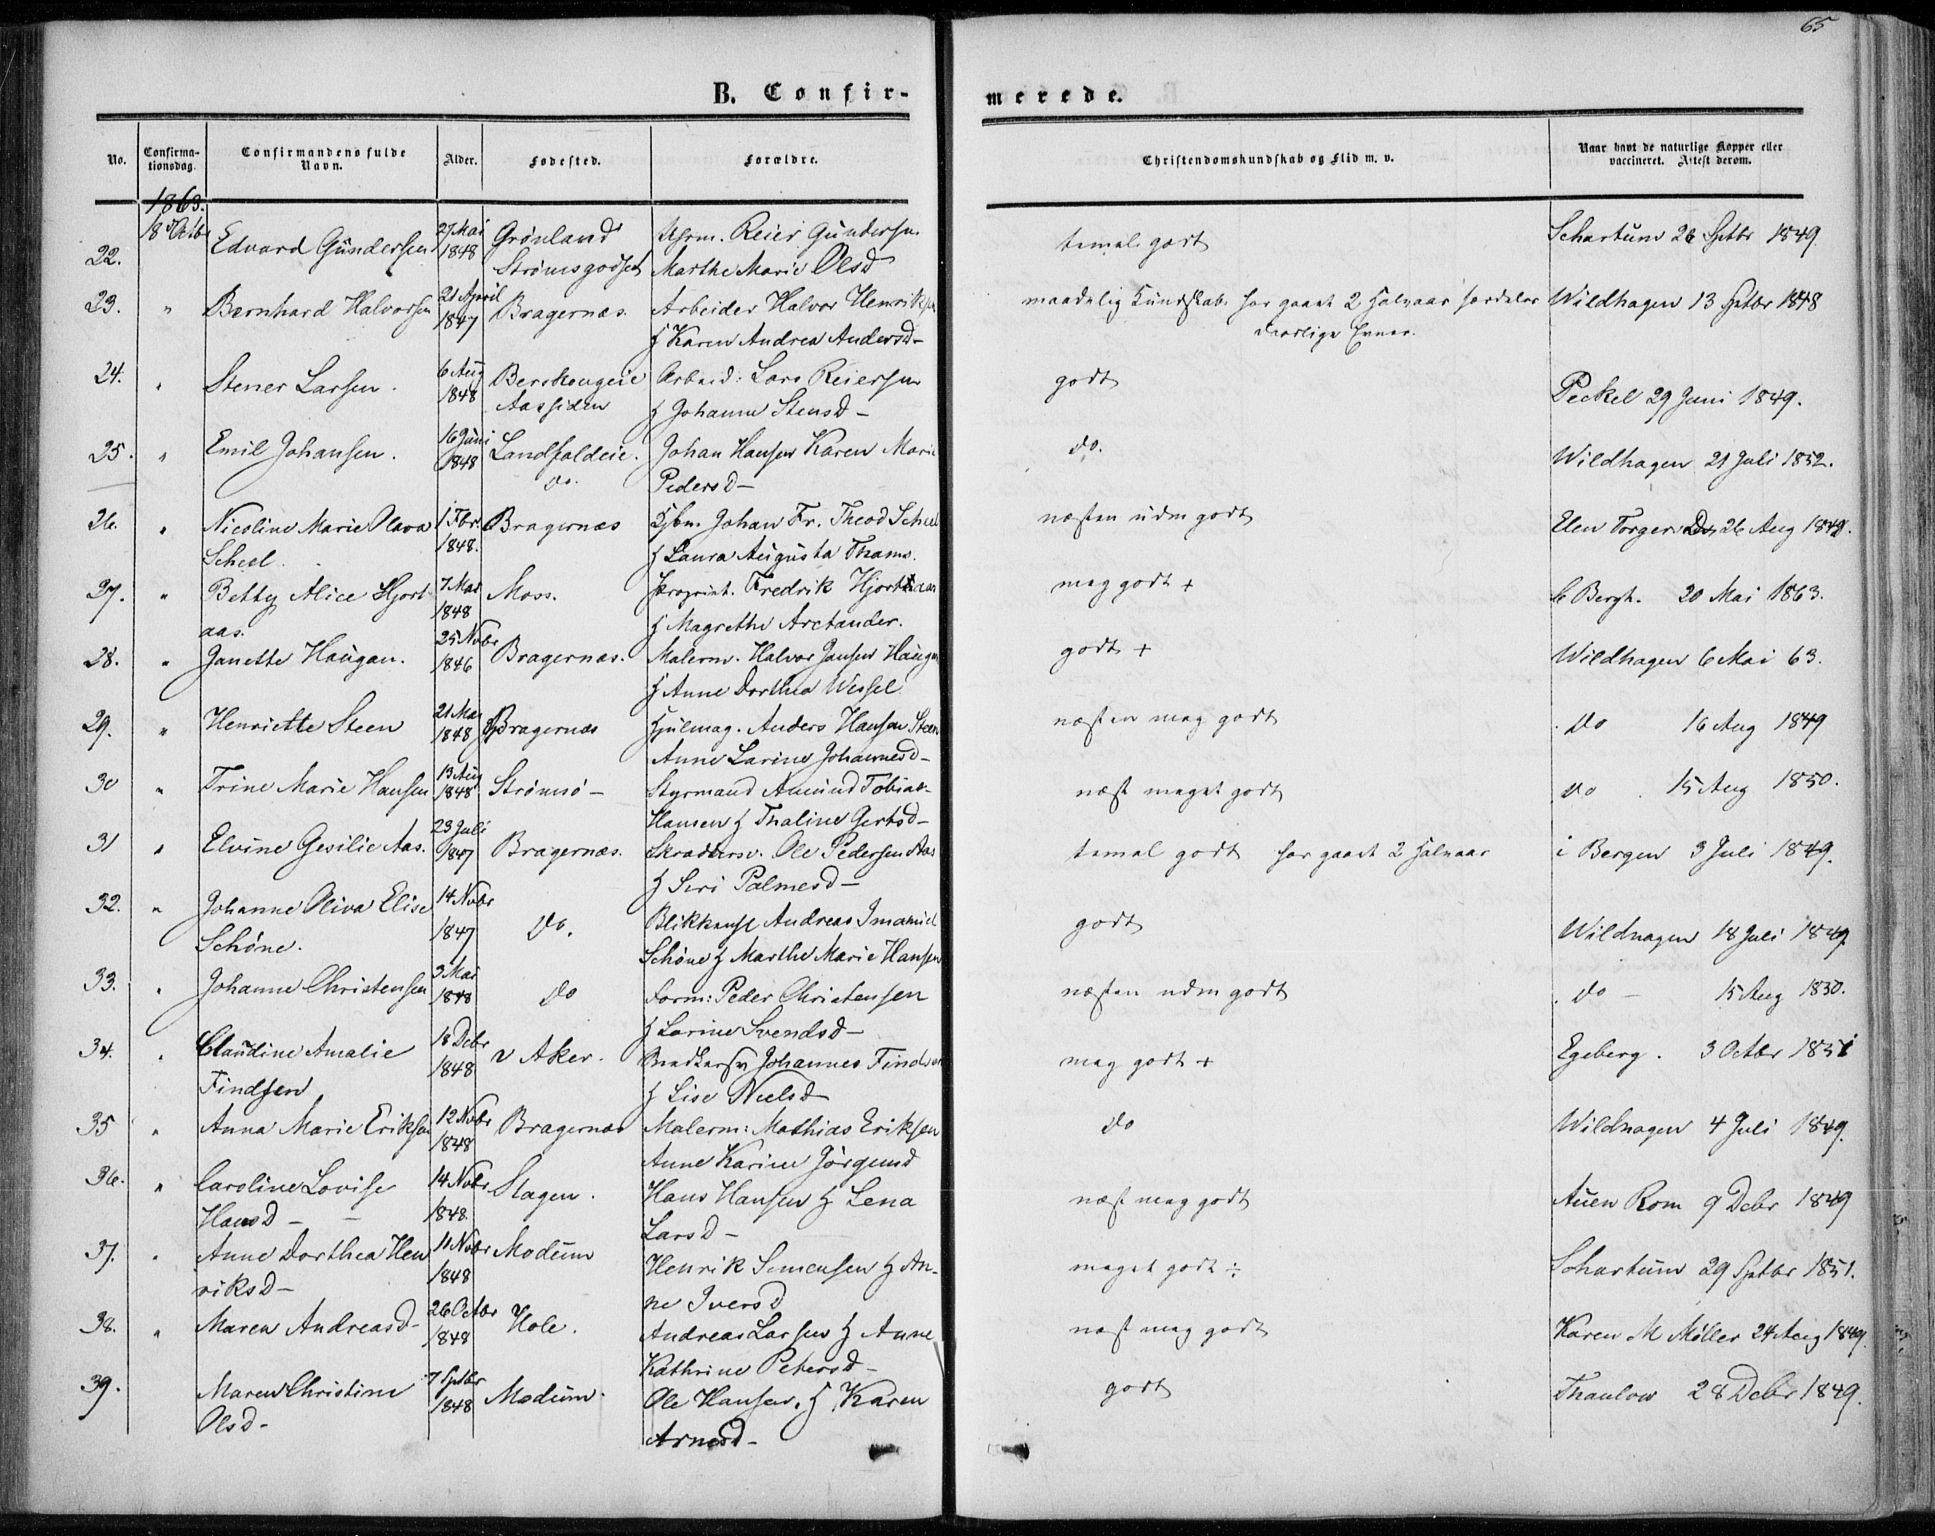 65
B. Confir-
merede.
No.
Confirma-
tionsdag.
Confirmandens fulde
Navn.
Alder.
Fødested.
Forældre.
Christendomskundskab og Flid m. v.
Naar havt de naturlige Kopper eller
vaccineret. Attest derom.
1863.
22. 18 Octb Edvard Gundersen 27 Mai 1848 Grønland Reier Gundersen tamel. godt Schartum 26 Sptbr 1849.
Strømsgodset Marthe Marie Olsd
23. " Bernhard Halvorsen 21 April 1847 Bragernæs. Arbeider Halvor Henriksen maadelig Kundskab. har gaaet 2 Halvaar Wildhagen 13 Sptbr 1848
& Karen Andrea Andersd- daarlige Evner.
24. " Stener Larsen. 6 Aug 1848 Berskougeie Arbeid: Lars Reiersen godt Peckel 29 Juni 1849.
Aassiden & Johanne Stensd-
25. " Emil Johansen. 16 Juni 1848 Landfaldeie. Johan Hansen Karen Marie do. Wildhagen 21 Juli 1852.
do. Pedersd-
26. " Nicoline Marie Olava 1 Fbr. 1848. Bragernæs Kjbm. Johan Fr. Theod Scheel næsten udm godt Elen Torgers D. 26 Aug 1848.
Scheel. & Laura Augusta Thams.
27. " Betty Alice Hjort- 7 Mar 1848 Moss. Proprint. Fredrik Hjortaas meg godt + C Bergh. 20 Mai 1863.
aas. & Magrethe Arctander.
28. " Janette Haugan. 25 Nvbr 1846 Bragernæs. Malerm. Halvor Jansen Haugan godt + Wildhagen 6 Mai 63.
& Anne Dorthea Wessel
29. " Henriette Steen 21 Mar 1848 Bragernæs Hjulmag. Anders Hansen Steen næsten meg godt do 16 Aug 1849
Anne Larine Johannesd-
30 " Trine Marie Hansen 13 Aug 1848 Strømsø- Styrmand Amund Tobias- næst meget godt do 15 Aug 1850.
Hansen & Thaline Gertsd-
31 " Elvine Gesilie Aas. 23 Juli 1847 Bragernæs. Skræddersv. Ole Pedersen Aas tamel godt har gaaet 2 Halvaar i Bergen 3 Juli 1849.
& Siri Palmesd-
32. " Johanne Oliva Elise 14 Nvbr 1847 do. Blikkensl Andreas Imanuel godt Wildhagen 18 Juli 1849
Schöne. Schöne & Marthe Marie Hansen
33. " Johanne Christensen 3 Mai 1848 do Form: Peder Christensen næsten udm godt do - 15 Aug 1850.
& Larine Svendsd-
34. " Claudine Amalie 18 Debr 1848 v Aker. Johannes Findsen meg godt + Egeberg. 3 Octbr 1851
Findsen & Lise Nielsd-
35 " Anna Marie Eriksen 12 Nvbr 1848 Bragernæs Malerm: Mathias Eriksen do Wildhagen 4 Juli 1849.
Anne Karine Jörgensd
36. " Caroline Lovise 14 Nvbr 1848 Slagen. Hans Hansen & Lena næst meg godt Auen Rom 9 Debr 1849
Hansd- - Larsd-
37. " Anne Dorthea Hen 11 Nvbr 1848 Modum Henrik Simensen & An- meget godt ÷ Schartum 29 Sptbr 1851.
riksd- ne Iversd
38. " Maren Andreasd- 26 Octbr 1848 Hole. Andreas Larsen & Anne næst meg godt Karen M Møller 24 Aug 1849.
Kathrine Petersd-
39. Maren Christine 7 Sptbr 1848 Modum. Ole Hansen. & Karen godt Thaulow 28 Debr 1849.
Olsd- Arnesd-